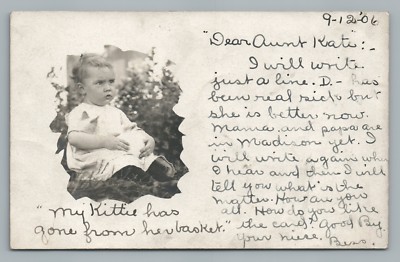 9-12-06
"Dear Aunt Kate:-
I will write
just a line. D- has
been real sick but
she is better now.
Mama and papa are
in Madison yet. I
will write again when
I hear and then I will
tell you what's the
matter. How are you
all. How do you like
the card? Good By.
Your niece.
"My Kittie has
gone from her basket."